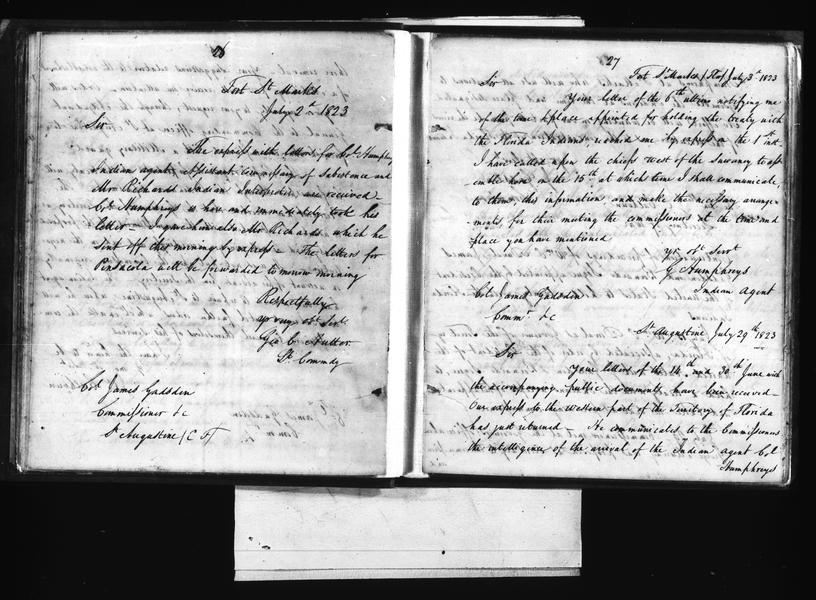 26
Fort St Marks
July 2d 1823
Sir
The express with letters for Col Humphreys
Indian agent, Assistant Commissary of Subsistence and
Mr Richards Indian Interpreter are received
Col Humphreys is here and immediately took his
letter – I gave him also Mr Richards which he
sent off this morning by express – The letters for
Pensacola will be forwarded to morrow morning
Respectfully
yr very obt Sert
Lt Commdg
Col James Gadsden
Commissioner &c
St Augustine (E F)
27
Fort St Marks (Flo) July 3d 1823
Sir
Your letter of the 6th ultimo notifying me
of the time & place appointed for holding the treaty with
the Florida Indians reached me by express on the 1st inst.
I have called upon the chiefs west of the Suwaney to ass
emble here on the 15th at which time I shall communicate,
to them, this information and make the necessary arrange-
ments, for their meeting the commissioners at the time and
place you have mentioned
yr obt Servt
G Humphreys
Indian Agent
Col James Gadsden
Commr &c
St Augustine July 29th 1823
Sir
Your letters of the 14th and 30th June with
the accompanying public documents have been received –
Our express to the western part of the Territory of Florida
has just returned – He communicates to the Commissioners
the intelligence of the arrival of the Indian agent Col
Humphreys